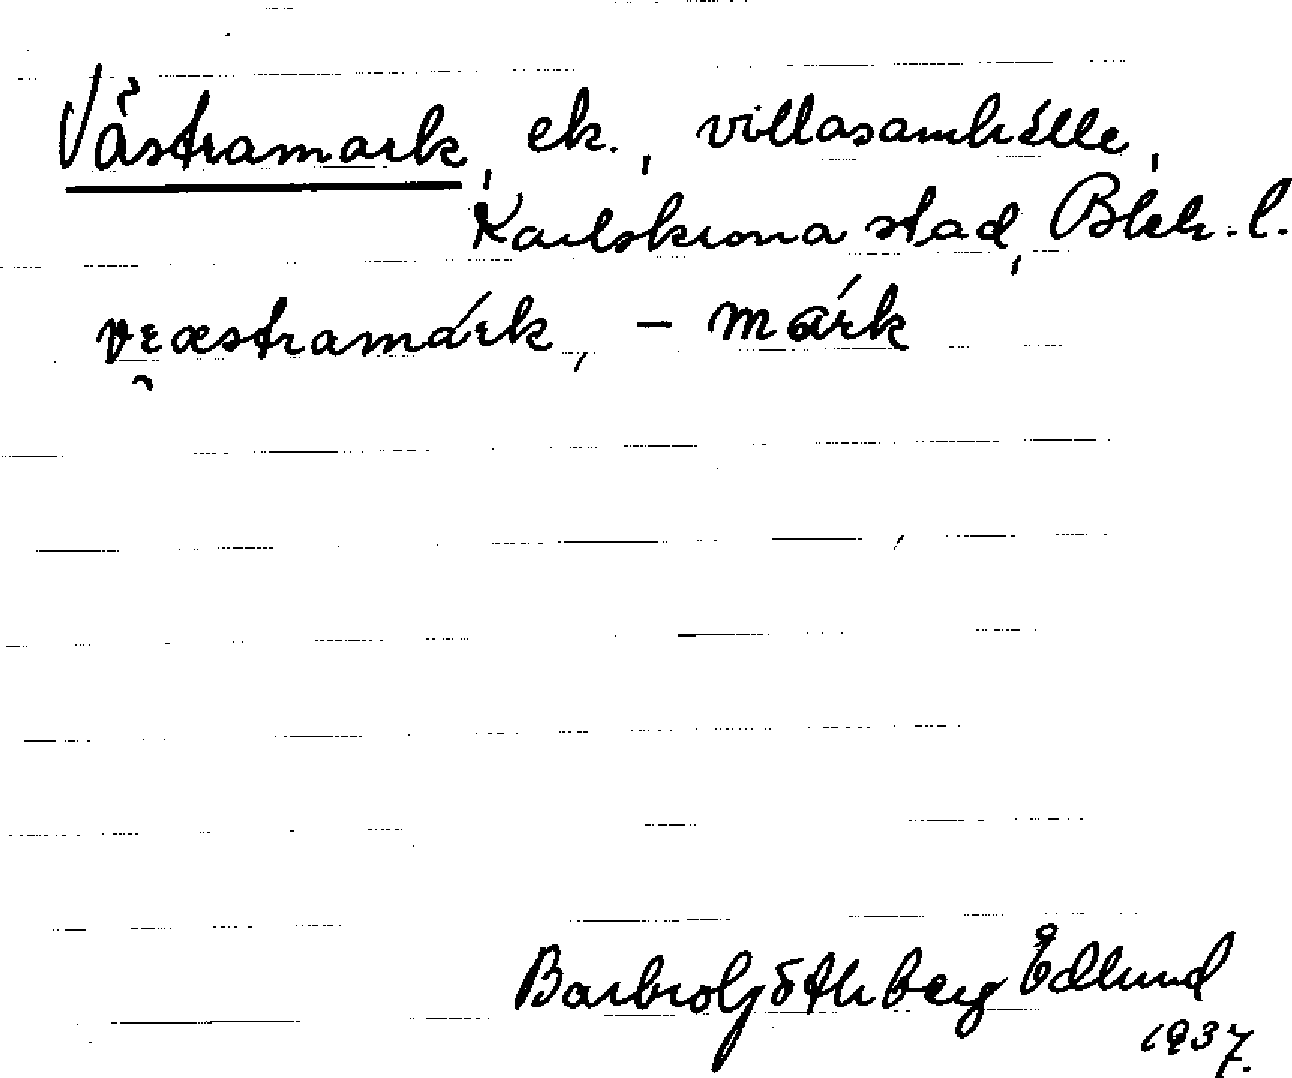 Västramark, ek., villasamhälle,
Karlskrona stad, Blek. l.
vɛæstramárk, – márk
Barbro Göthberg Edlund
1937.